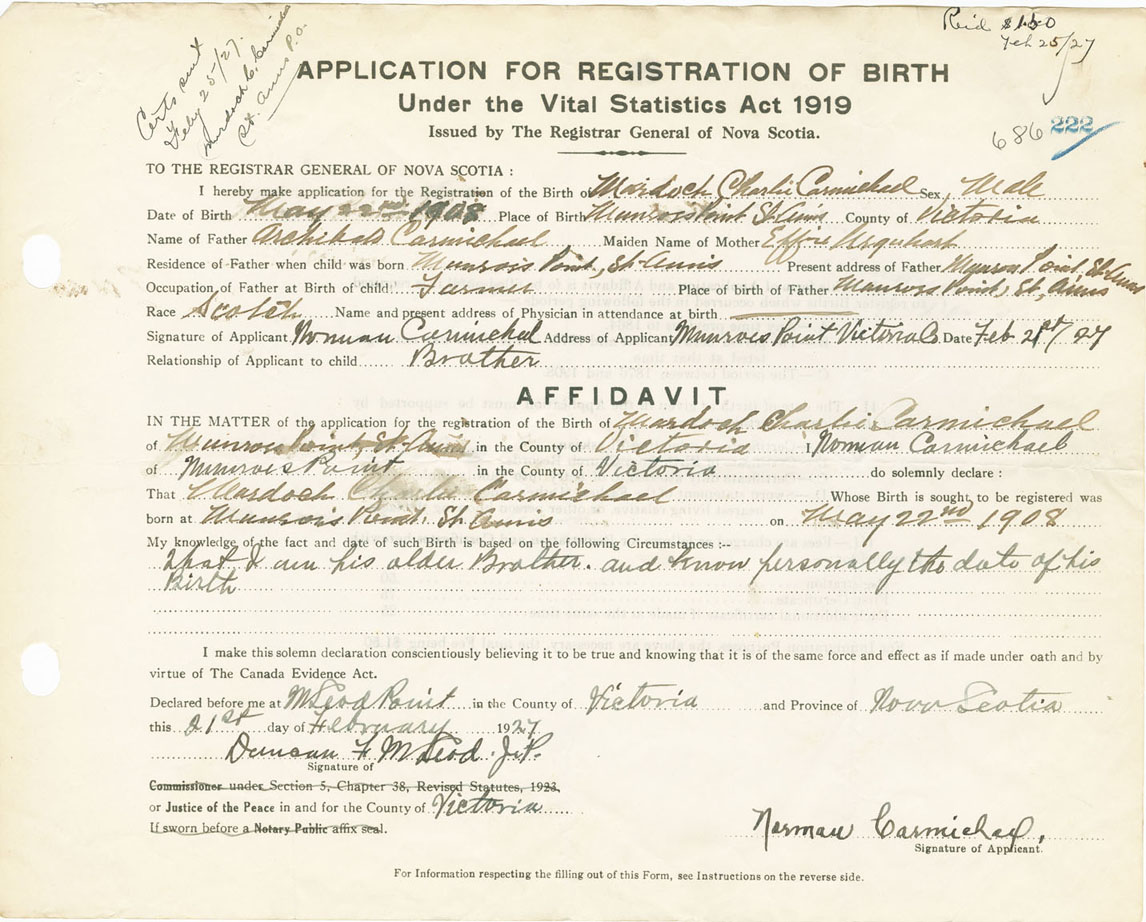 Certs sent
Feby 25/27.
Murdoch C. Carmichael
St. Anns P.O.
Paid $1.50
Feb 25/27
686 222
APPLICATION FOR REGISTRATION OF BIRTH
Under the Vital Statistics Act 1919
Issued by The Registrar General of Nova Scotia.
TO THE REGISTRAR GENERAL OF NOVA SCOTIA :
I hereby make application for the Registration of the Birth of Murdoch Charlie Carmichael Sex, Male
Date of Birth May 22nd 1908 Place of Birth Munroes Point St Anns County of Victoria
Name of Father Archibald Carmichael Maiden Name of Mother Effie Urquhart
Residence of Father when child was born Munrois Point, St Anns Present address of Father Munros Point, St Anns
Occupation of Father at Birth of child: Farmer Place of birth of Father Munroes Point, St, Anns
Race Scotch Name and present address of Physician in attendance at birth
Signature of Applicant Norman Carmichael Address of Applicant Munroes Point Victoria Co Date Feb 21st/27
Relationship of Applicant to child Brother
AFFIDAVIT
IN THE MATTER of the application for the registration of the Birth of Murdoch Charlie Carmichael
of Munroes Point, St. Anns in the County of Victoria I, Norman Carmichael
of Munroes Point in the County of Victoria do solemnly declare :
That Murdoch Charlie Carmichael Whose Birth is sought to be registered was
born at Munrois Point, St Anns on May 22nd 1908
My knowledge of the fact and date of such Birth is based on the following Circumstances :--
that I am his older Brother. and know personally the date of his
Birth
I make this solemn declaration conscientiously believing it to be true and knowing that it is of the same force and effect as if made under oath and by
virtue of The Canada Evidence Act.
Declared before me at McLeod Point in the County of Victoria and Province of Nova Scotia
this 21st day of February 1927
Duncan F McLeod J.P.
Signature of
Commissioner under Section 5, Chapter 38, Revised Statutes, 1923,
or Justice of the Peace in and for the County of Victoria
If sworn before a Notary Public affix seal.
Norman Carmichael,
Signature of Applicant.
For Information respecting the filling out of this Form, see Instructions on the reverse side.